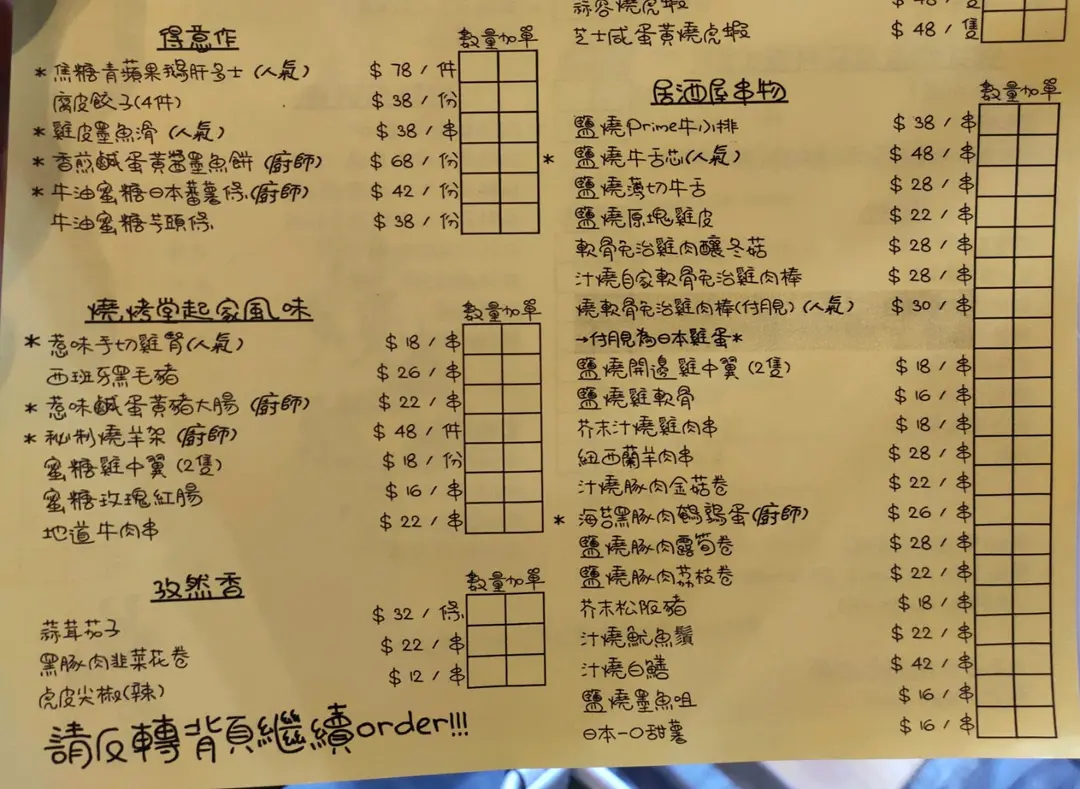 得意作 數量加單
*焦糖青蘋果鵝肝多士(人氣) $78/件
腐皮餃子(4件) $38/份
*雞皮墨魚滑(人氣) $38/串
*香煎鹹蛋黃醬墨魚餅(廚師) $68/份
*牛油蜜糖日本蕃薯條(廚師) $42/份
牛油蜜糖芋頭條 $38/份
燒烤堂起家風味 數量加單
*惹味手切雞腎(人氣) $18/串
西班牙黑毛豬 $26/串
*惹味鹹蛋黃豬大腸(廚師) $22/串
*秘制燒羊架(廚師) $48/件
蜜糖雞中翼(2隻) $18/份
蜜糖玫瑰紅腸 $16/串
地道牛肉串 $22/串
孜然香 數量加單
蒜茸茄子 $32/條
黑豚肉韭菜花卷 $22/串
虎皮尖椒(辣) $12/串
請反轉背頁繼續order!!!
蒜容燒虎蝦 $48/隻
芝士咸蛋黃燒虎蝦 $48/隻
居酒屋串物 數量加單
鹽燒Prime牛小排 $38/串
*鹽燒牛舌芯(人氣) $48/串
鹽燒薄切牛舌 $28/串
鹽燒原塊雞皮 $22/串
軟骨免治雞肉釀冬菇 $28/串
汁燒自家軟骨免治雞肉棒 $28/串
燒軟骨免治雞肉棒(付月見)(人氣) $30/串
→付月見為日本雞蛋*
鹽燒開邊雞中翼(2隻) $18/串
鹽燒雞軟骨 $16/串
芥末汁燒雞肉串 $18/串
紐西蘭羊肉串 $28/串
汁燒豚肉金菇卷 $22/串
*海苔黑豚肉鵪鶉蛋(廚師) $26/串
鹽燒豚肉露筍卷 $28/串
鹽燒豚肉荔枝卷 $22/串
芥末松阪豬 $18/串
汁燒魷魚鬚 $22/串
汁燒白鱔 $42/串
鹽燒墨魚咀 $16/串
日本一口甜薯 $16/串